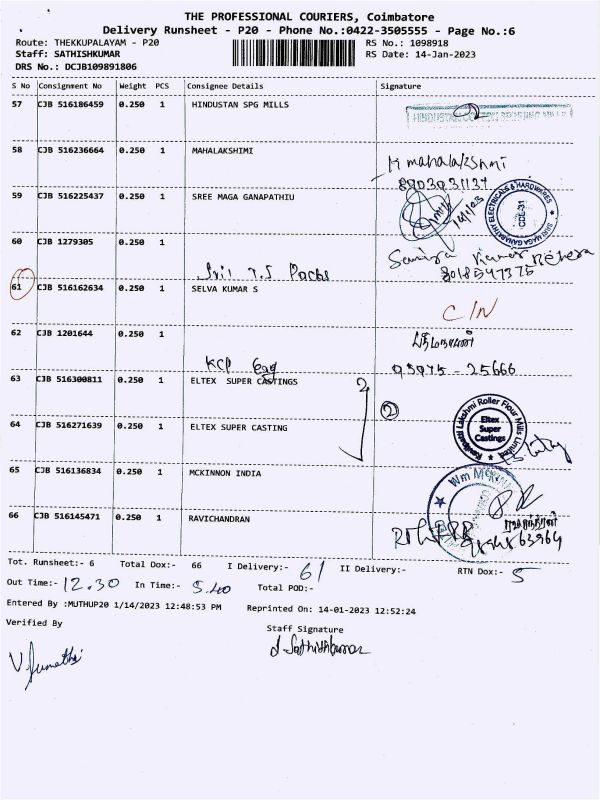 THE PROFESSIONAL COURIERS, Coimbatore
Delivery Runsheet - P20 - Phone No.:0422-3505555 - Page No.:6
Route: THEKKUPALAYAM - P20 RS No.: 1098918
Staff: SATHISHKUMAR RS Date: 14-Jan-2023
DRS No.: DCJB109891806
S No Consignment No Weight PCS Consignee Details Signature
57 CJB 516186459 0.250 1 HINDUSTAN SPG MILLS
HINDUSTAN COTTON SPINNING MILLS
58 CJB 516236664 0.250 1 MAHALAKSHIMI
M mahalakshmi
8903931137
59 CJB 516225437 0.250 1 SREE MAGA GANAPATHIU
14/1/23
SRI MAGA GANAPATHY ELECTRICALS & HARDWARES
CBE-31
60 CJB 1279305 0.250 1
Sril T.S Packs
8018547375
61 CJB 516162634 0.250 1 SELVA KUMAR S
C/N
62 CJB 1201644 0.250 1
KCP Egg
93975 - 25666
63 CJB 516300811 0.250 1 ELTEX SUPER CASTINGS
2
64 CJB 516271639 0.250 1 ELTEX SUPER CASTING
Lakshmi Roller Flour Mills Limited
Eltex
Super
Castings
65 CJB 516136834 0.250 1 MCKINNON INDIA
66 CJB 516145471 0.250 1 RAVICHANDRAN
Tot. Runsheet:- 6 Total Dox:- 66 I Delivery:- 61 II Delivery:- RTN Dox:- 5
Out Time:- 12.30 In Time:- 5.40 Total POD:-
Entered By :MUTHUP20 1/14/2023 12:48:53 PM Reprinted On: 14-01-2023 12:52:24
Verified By
Staff Signature
V. Sumathi
S. Sathishkumar